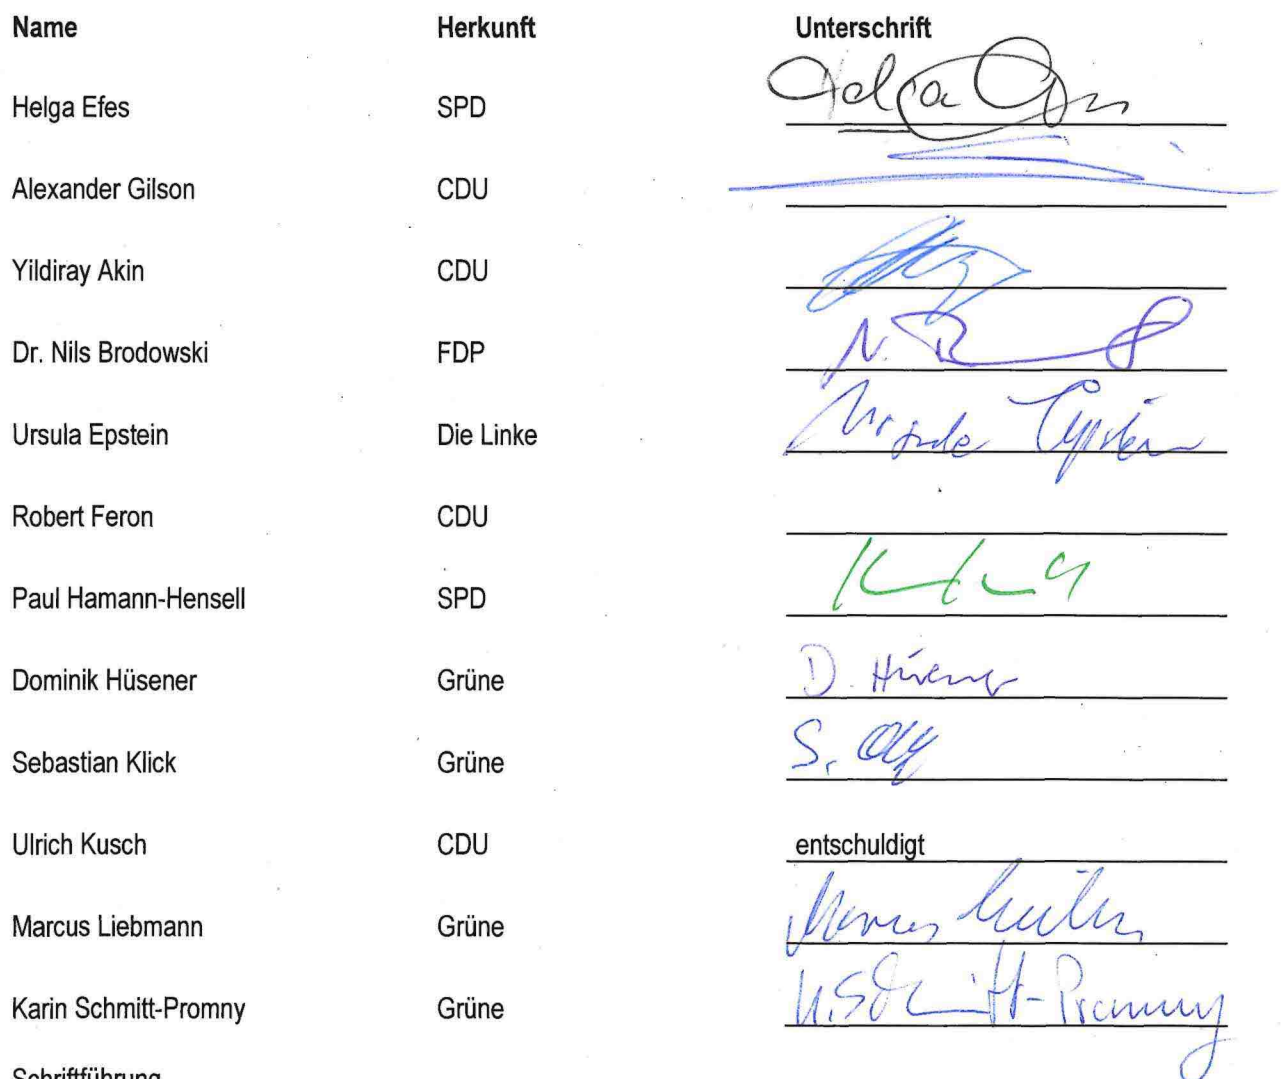 Name Herkunft Unterschrift
Helga Efes SPD Helga
Alexander Gilson CDU
Yildiray Akin CDU
Dr. Nils Brodowski FDP N.
Ursula Epstein Die Linke Ursula Epstein
Robert Feron CDU
Paul Hamann-Hensell SPD
Dominik Hüsener Grüne D. Hüsener
Sebastian Klick Grüne S.
Ulrich Kusch CDU entschuldigt
Marcus Liebmann Grüne Marcus
Karin Schmitt-Promny Grüne K. Schmitt-Promny
Schriftführung